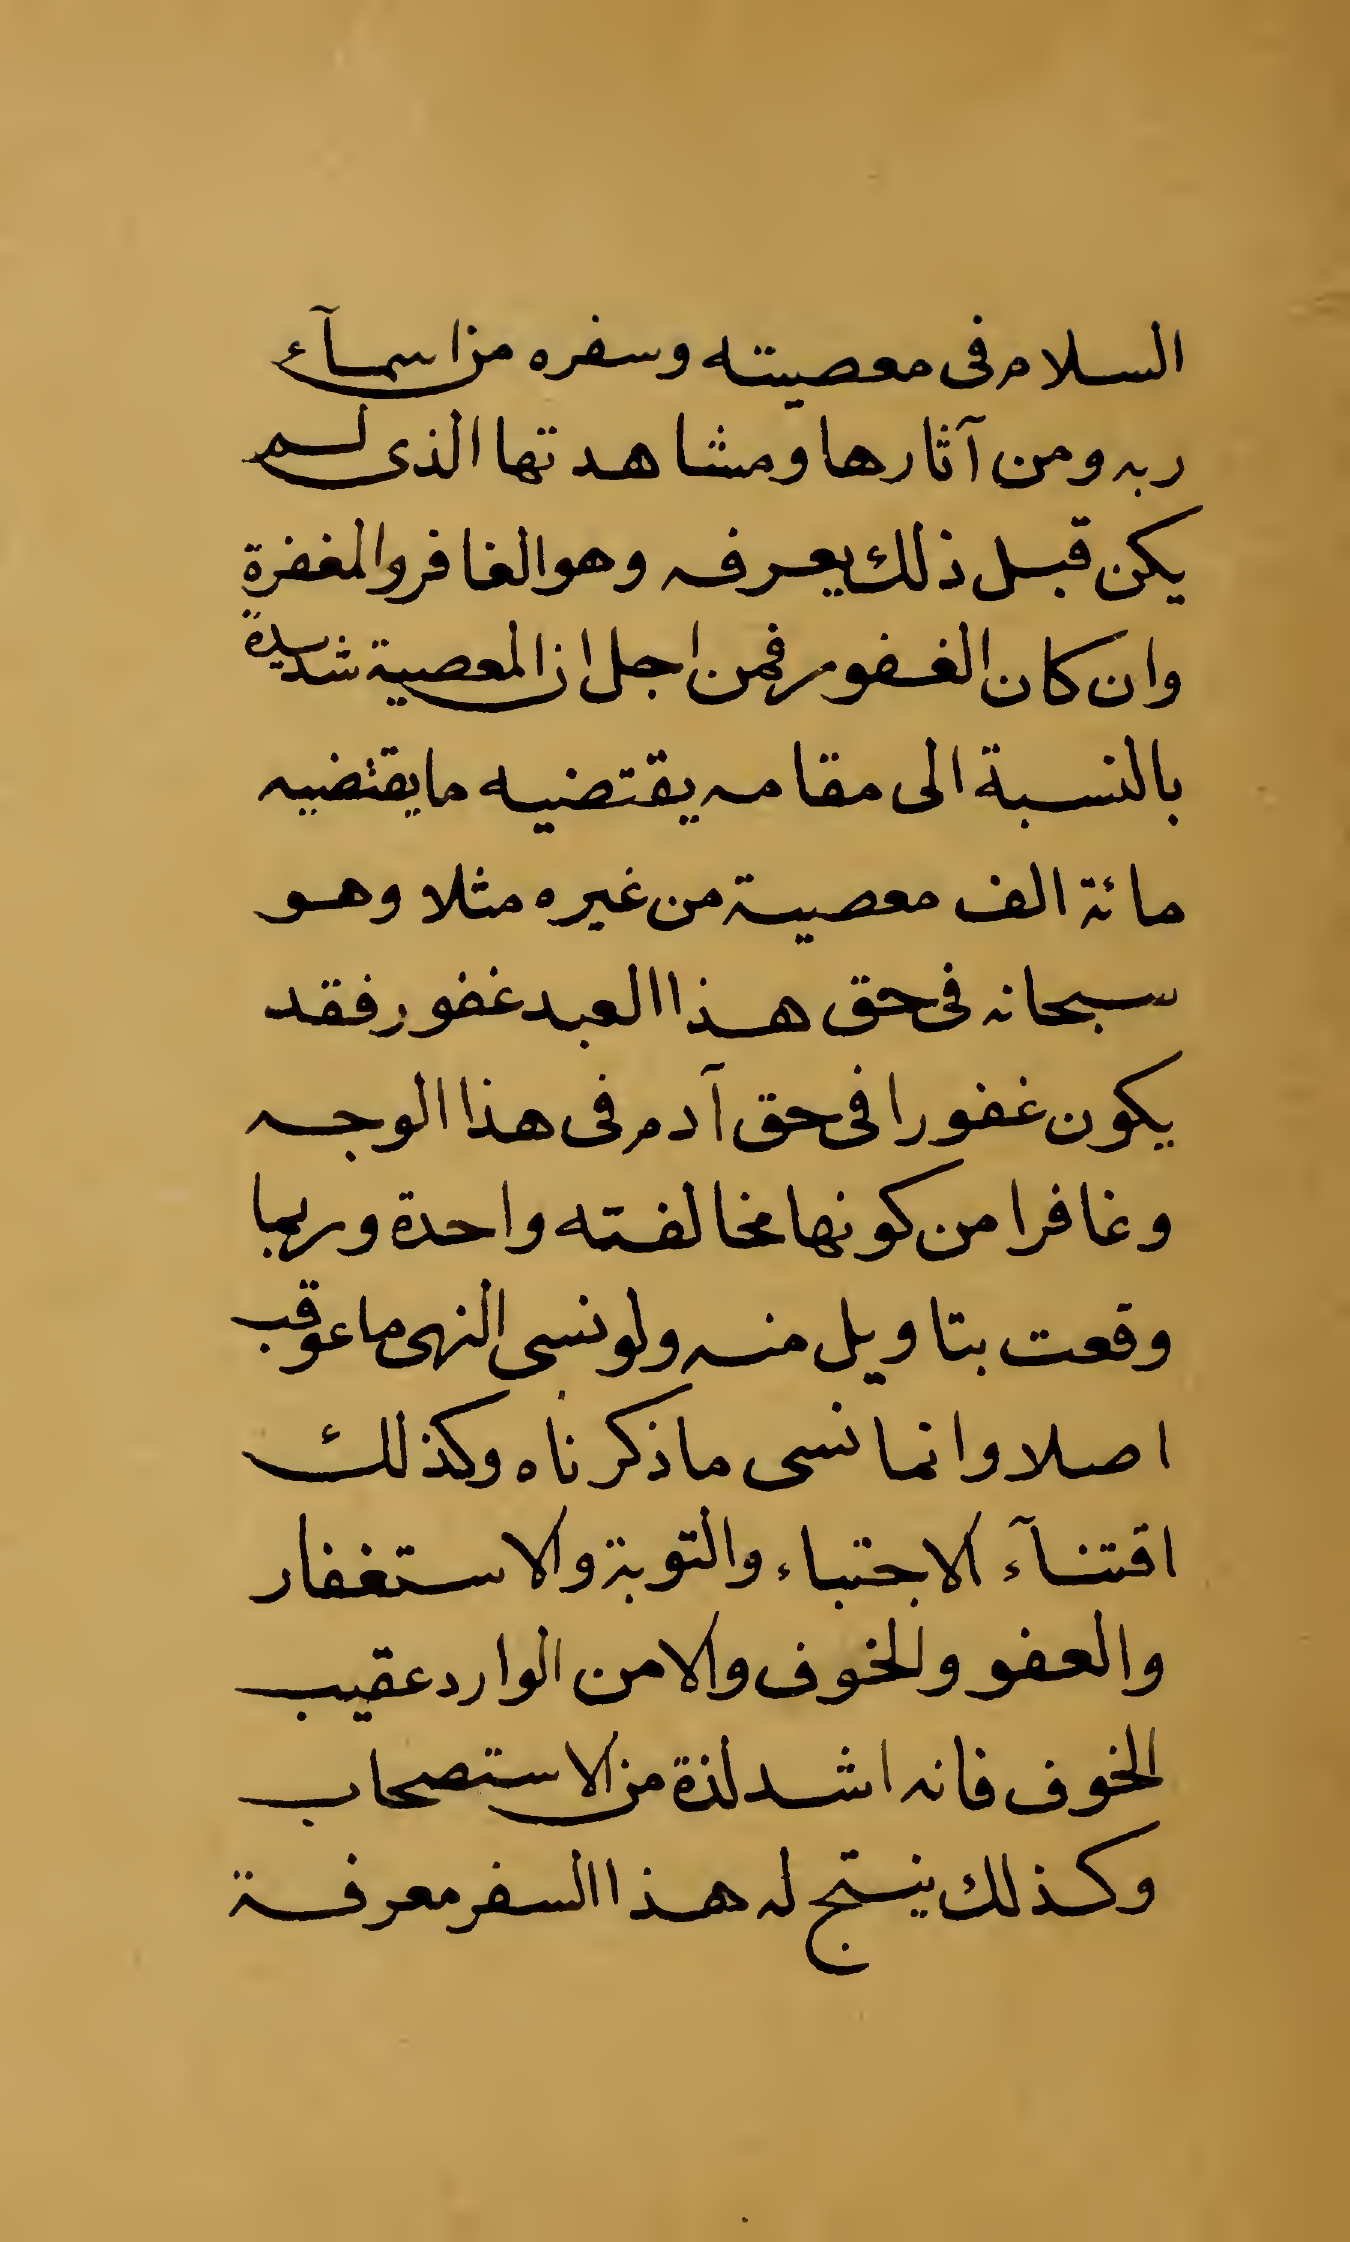 السلام فى معصيته وسفره من اسمآء
ربه ومن آثارها ومشاهدتها الذى لسم
يكن قبل ذلك يعرفه وهو الغافر والمغفرة
وان كان الغفور فمن اجل ان المعصية شديدة
بالنسبة الى مقامه يقتضيه ما يقتضيه
مائة الف معصية من غيره مثلا وهو
سبحانه فى حق هذا العبد غفور فقد
يكون غفورا فى حق آدم فى هذا الوجه
وغافرا من كونها مخالفته واحدة وربما
وقعت بتاويل منه ولو نسى النهى ما عوقب
اصلا وانما نسى ما ذكرناه وكذلك
اقتنآء الاجتباء والتوبة والاستغفار
والعفو والخوف والامن الوارد عقيب
الخوف فانه اشد لذة من الاستصحاب
وكذلك ينتج له هذا السفر معرفة